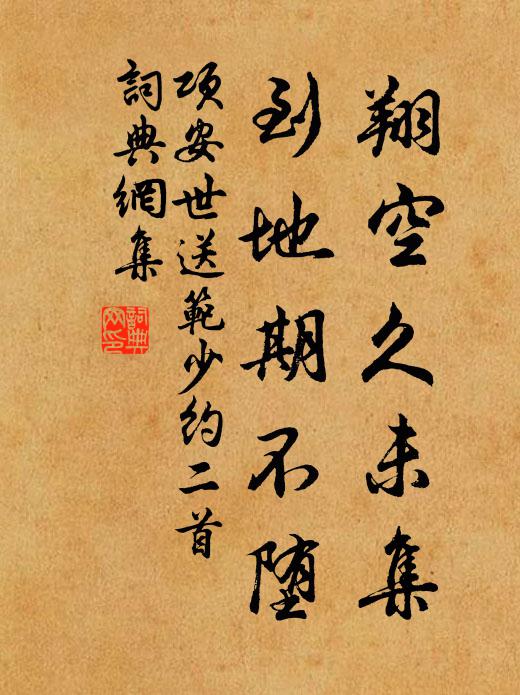 翔空久未集
到地期不堕
项安世送範少约二首
詞典網集
詞典網印